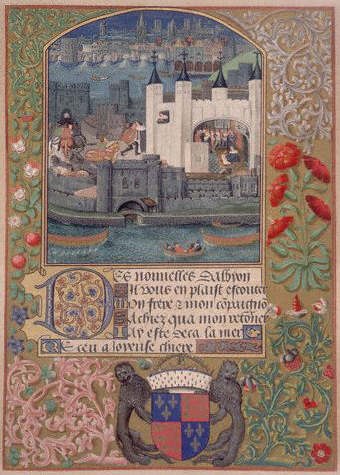 Des nouvelles Dalbyon
Sil vous en plaist escouter
Mon frere & mon cõpaignõ
Sachiez qua mon retoner
Jay este deca la mer
Receu a Joyeuse chiere